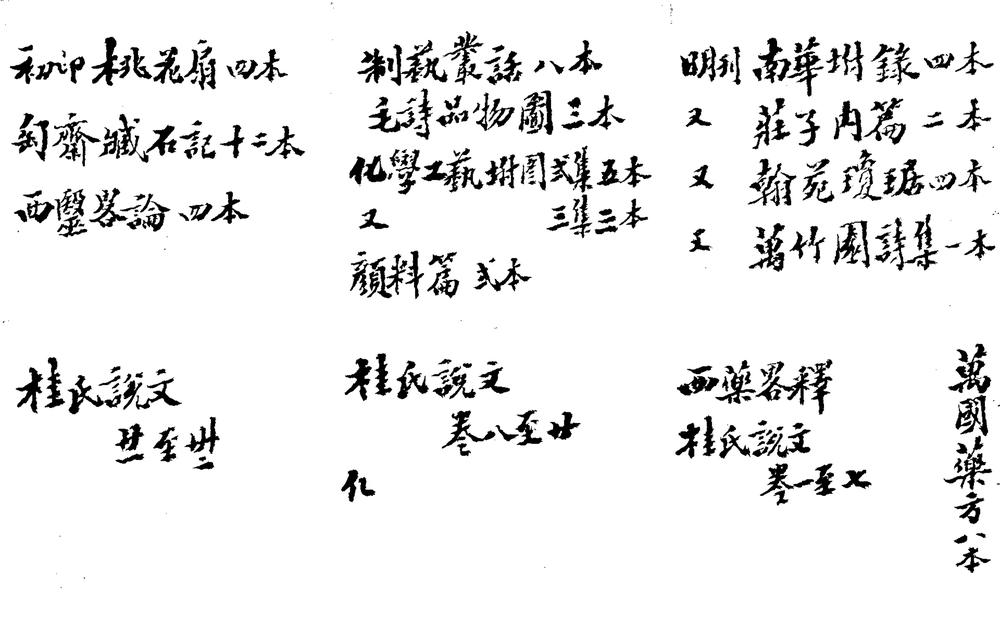 初印桃花扇四本
匋齋臧石記十二本
西醫畧論四本
制藝叢話八本
毛詩品物圖三本
化學工藝坿圖弍集五本
又 三集二本
顏料篇弍本
明刊南華坿錄四本
又 莊子內篇二本
又 翰苑瓊琚四本
又 萬竹園詩集一本
桂氏說文
廿一至卅二
桂氏說文
卷八至廿
西藥畧釋
桂氏說文
卷一至七
萬國藥方八本